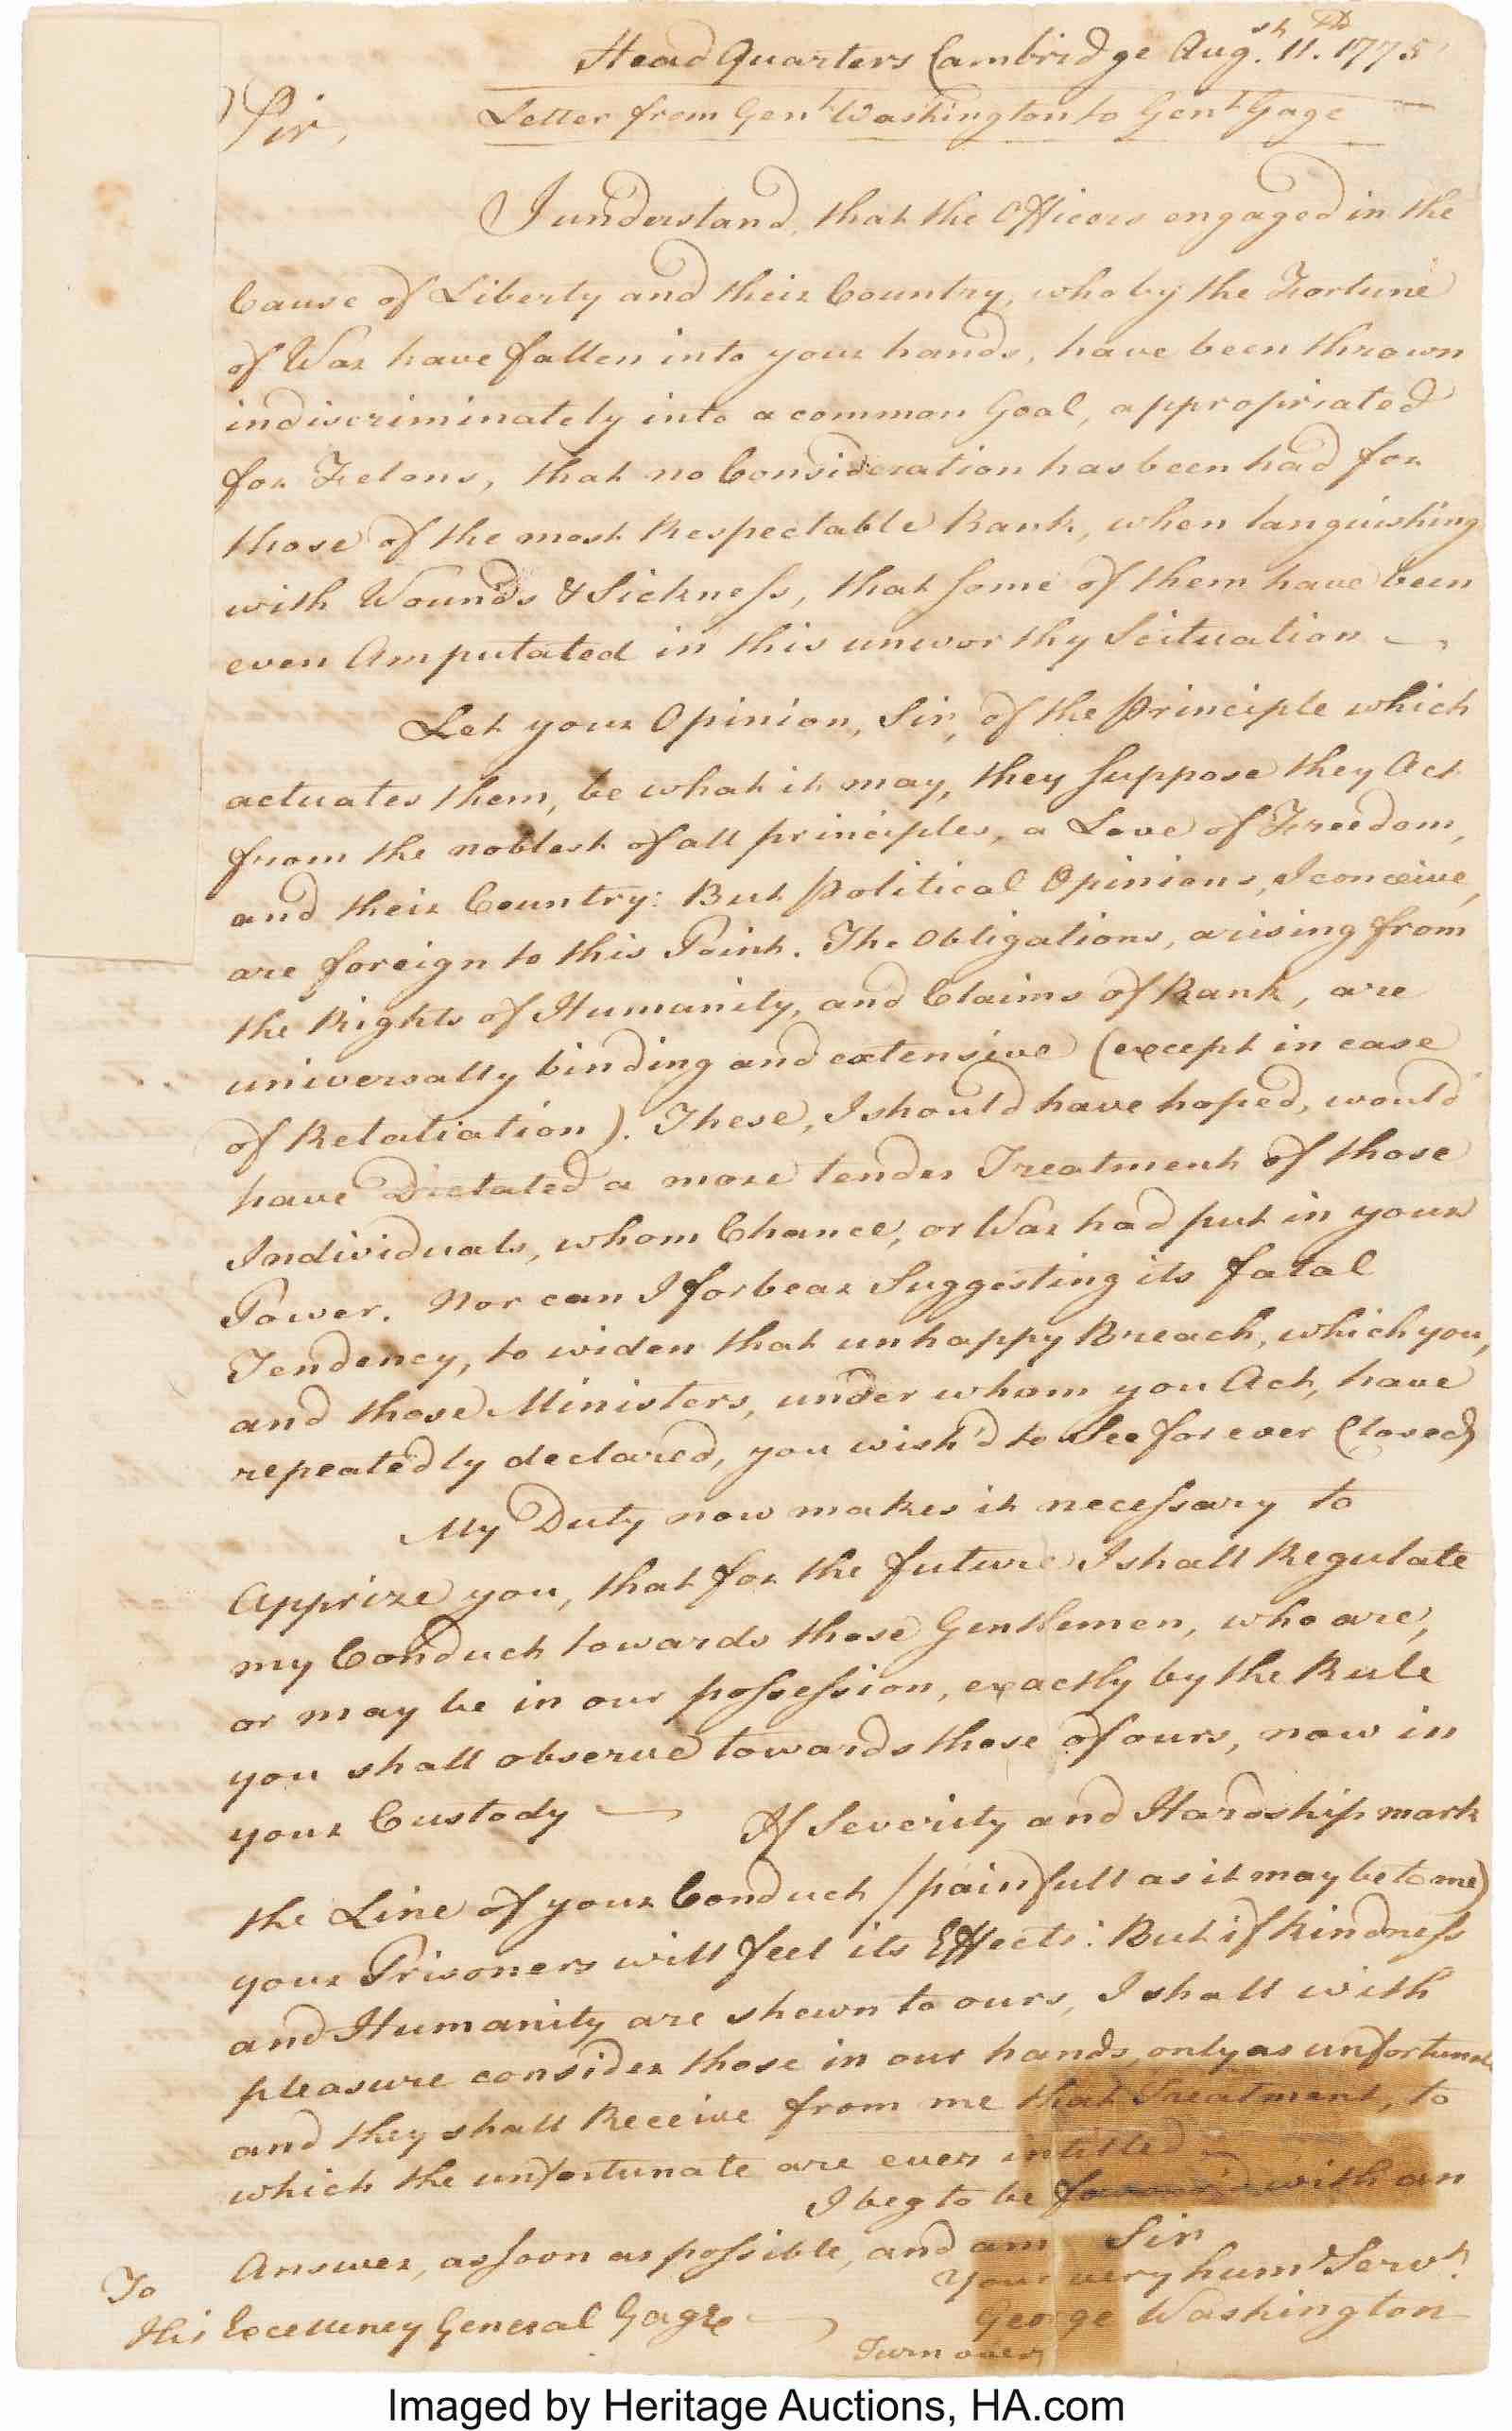 Head Quarters Cambridge Augst. 11.th 1775
Letter from Genl Washington to Genl Gage
Sir,
I understand, that the Officers engaged in the
Cause of Liberty and their Country, who by the Fortune
of War have fallen into your hands, have been thrown
indiscriminately into a common Goal, appropriated
for Felons, that no Consideration has been had for
those of the most Respectable Rank, when languishing
with Wounds & Sickness, that some of them have been
even Amputated in this unworthy Scituation —
Let your Opinion, Sir, of the Principle which
actuates them, be what it may, they suppose they Act
from the noblest of all principles, a Love of Freedom,
and their Country: But Political Opinions, I conceive,
are foreign to this Point. The Obligations, arising from
the Rights of Humanity, and Claims of Rank, are
universally binding and extensive (except in case
of Retaliation). These, I should have hoped, would
have Dictated a more tender Treatment of those
Individuals, whom Chance, or War had put in your
Power. Nor can I forbear Suggesting its fatal
Tendency, to widen that unhappy Breach, which you,
and those Ministers, under whom you Act, have
repeatedly declared, you wish'd to See for ever Closed,
My Duty now makes it necessary to
Apprize you, that for the future I shall Regulate
my Conduct towards those Gentlemen, who are,
or may be in our possession, exactly by the Rule
you shall observe towards those of ours, now in
your Custody — If Severity and Hardship mark
the Line of your Conduct (painfull as it may be to me)
your Prisoners will feel its Effects: But if kindness
and Humanity are shewn to ours, I shall with
pleasure consider those in our hands, only as unfortunate
and they shall Receive from me that Treatment, to
which the unfortunate are ever intitled —
I beg to be favour'd with an
Answer, as soon as possible, and am Sir
Your very huml Servt.
George Washington
To
His Excellency General Gage —
Turn over
Imaged by Heritage Auctions, HA.com